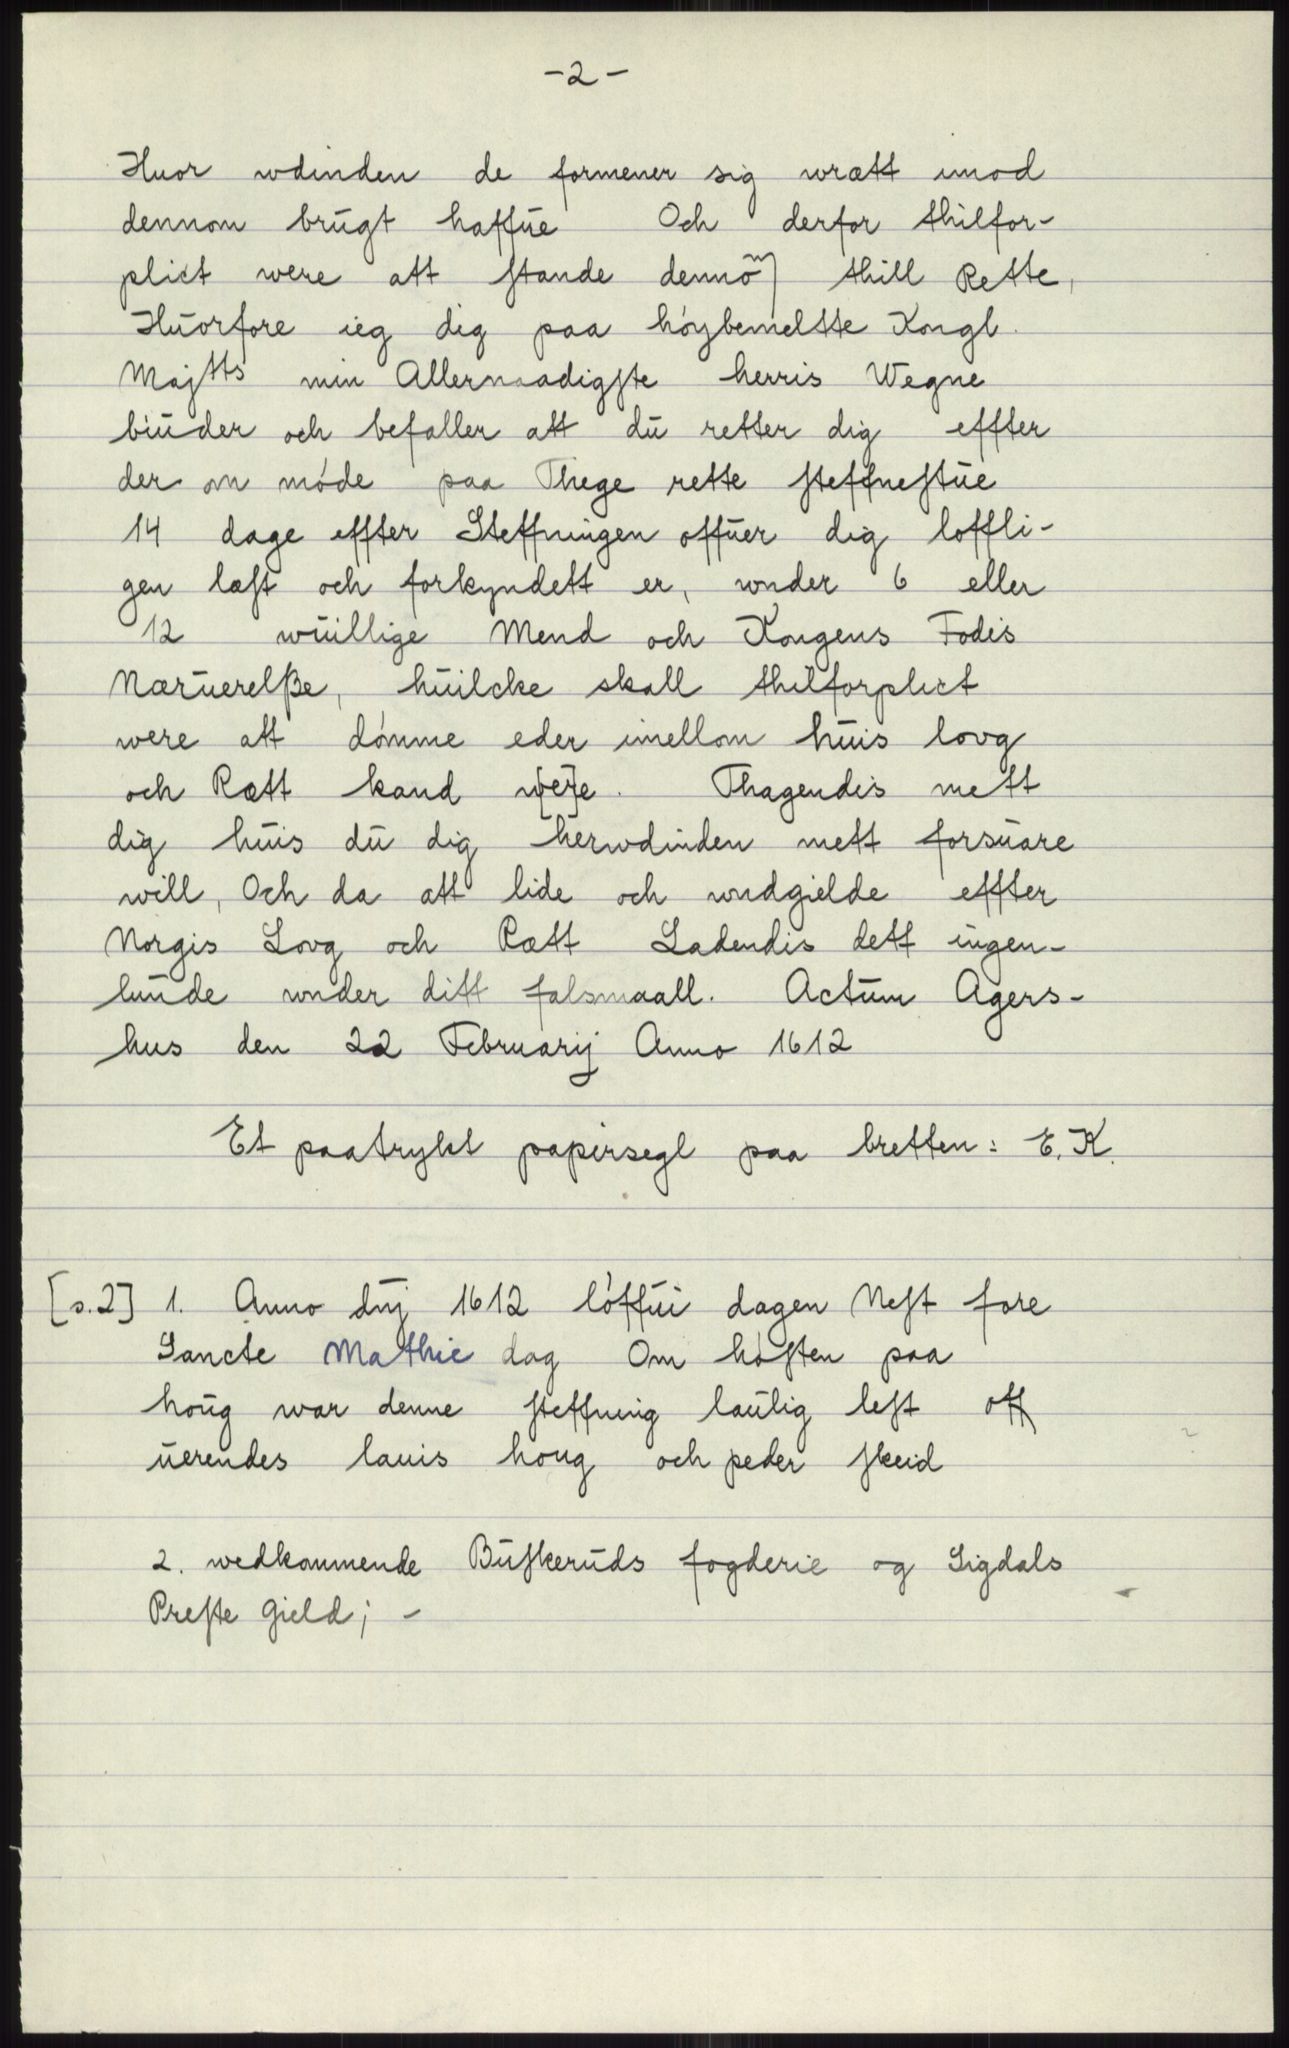 -2-
Huor wdinden de formener sig wrætt imod
dennom brūgt haffūe Och derfor thilfor-
plict were att ſtande dennōm thill Rette,
Hūorfore ieg dig paa höybemeltte Kongl.
Majtts min Allernaadigſte herris Wegne
biūder och befaller att dū retter dig effter
der om möde paa Thege rette ſteffneſtūe
14 dage effter Steffningen offūer dig loffli-
gen læſt och forkyndett er, wnder 6 eller
12 wūillige Mend och Kongens Fodis
Nærūerelße, hūilcke skall thilforplict
were att dömme eder imellom hūis lovg
och Rætt kand w[er]e. Thagendis mett
dig hūis dū dig herwdinden mett forsūare
will, Och da att lide och wndgielde effter
Norgis Lovg och Rætt Ladendis dett ingen-
lūnde wnder ditt falsmaall. Actūm Agers-
hus den 22 Februarij Anno 1612
Et paatrykt papirsegl paa bretten: E. K.
[s.2] 1. Anno dnj 1612 löffūi dagen Neſt fore
Sancte Mathie dag Om höſten paa
hoūg war denne ſteffning laūlig leſt off
ūerendes lauis houg och peder ſkeid
2. wedkommende Būſkerūds fogderie og Sigdals
Preſte Gield; -